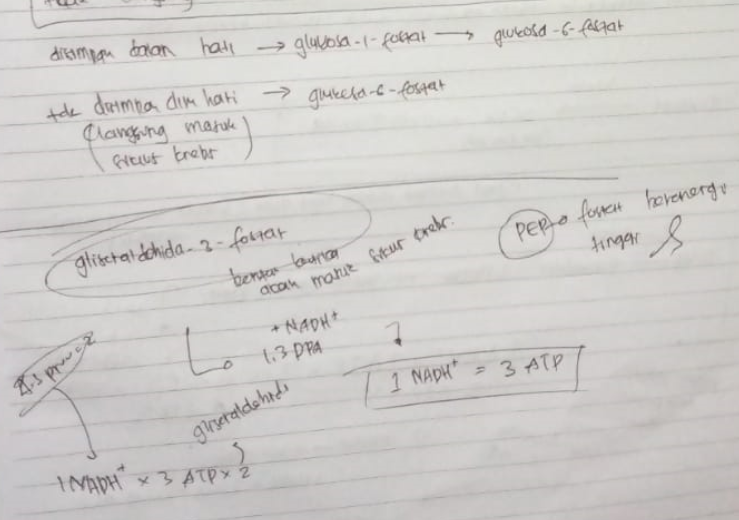 disimpan dalam hati → glukosa-1-fosfat → glukosa-6-fosfat
tdk disimpan dlm hati → glukosa-6-fosfat
(langsung masuk
siklus krebs)
gliseraldehida-3-fosfat
bentuk
akan masuk siklus krebs.
PEP → fosfat berenergi
tinggi
+ NADH⁺
1.3 DPA
1 NADH⁺ = 3 ATP
gliseraldehida
1 NADH⁺ × 3 ATP × 2